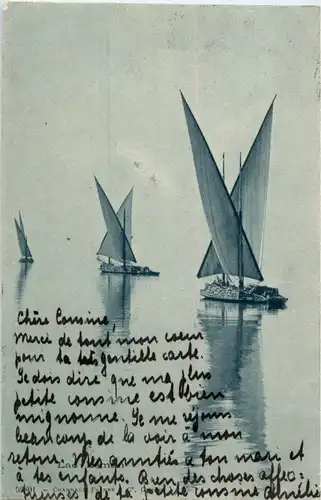 Chère Cousine
Merci de tout mon coeur
pour ta très gentille carte.
Je dois dire que ma plus
petite cousine est bien
mignonne. Je me réjouis
beaucoup de la voir à mon
retour. Mes amitiés à ton mari et
à tes enfants. Bien des choses affec-
tueuses de ta petite cousine Amélie
Lac